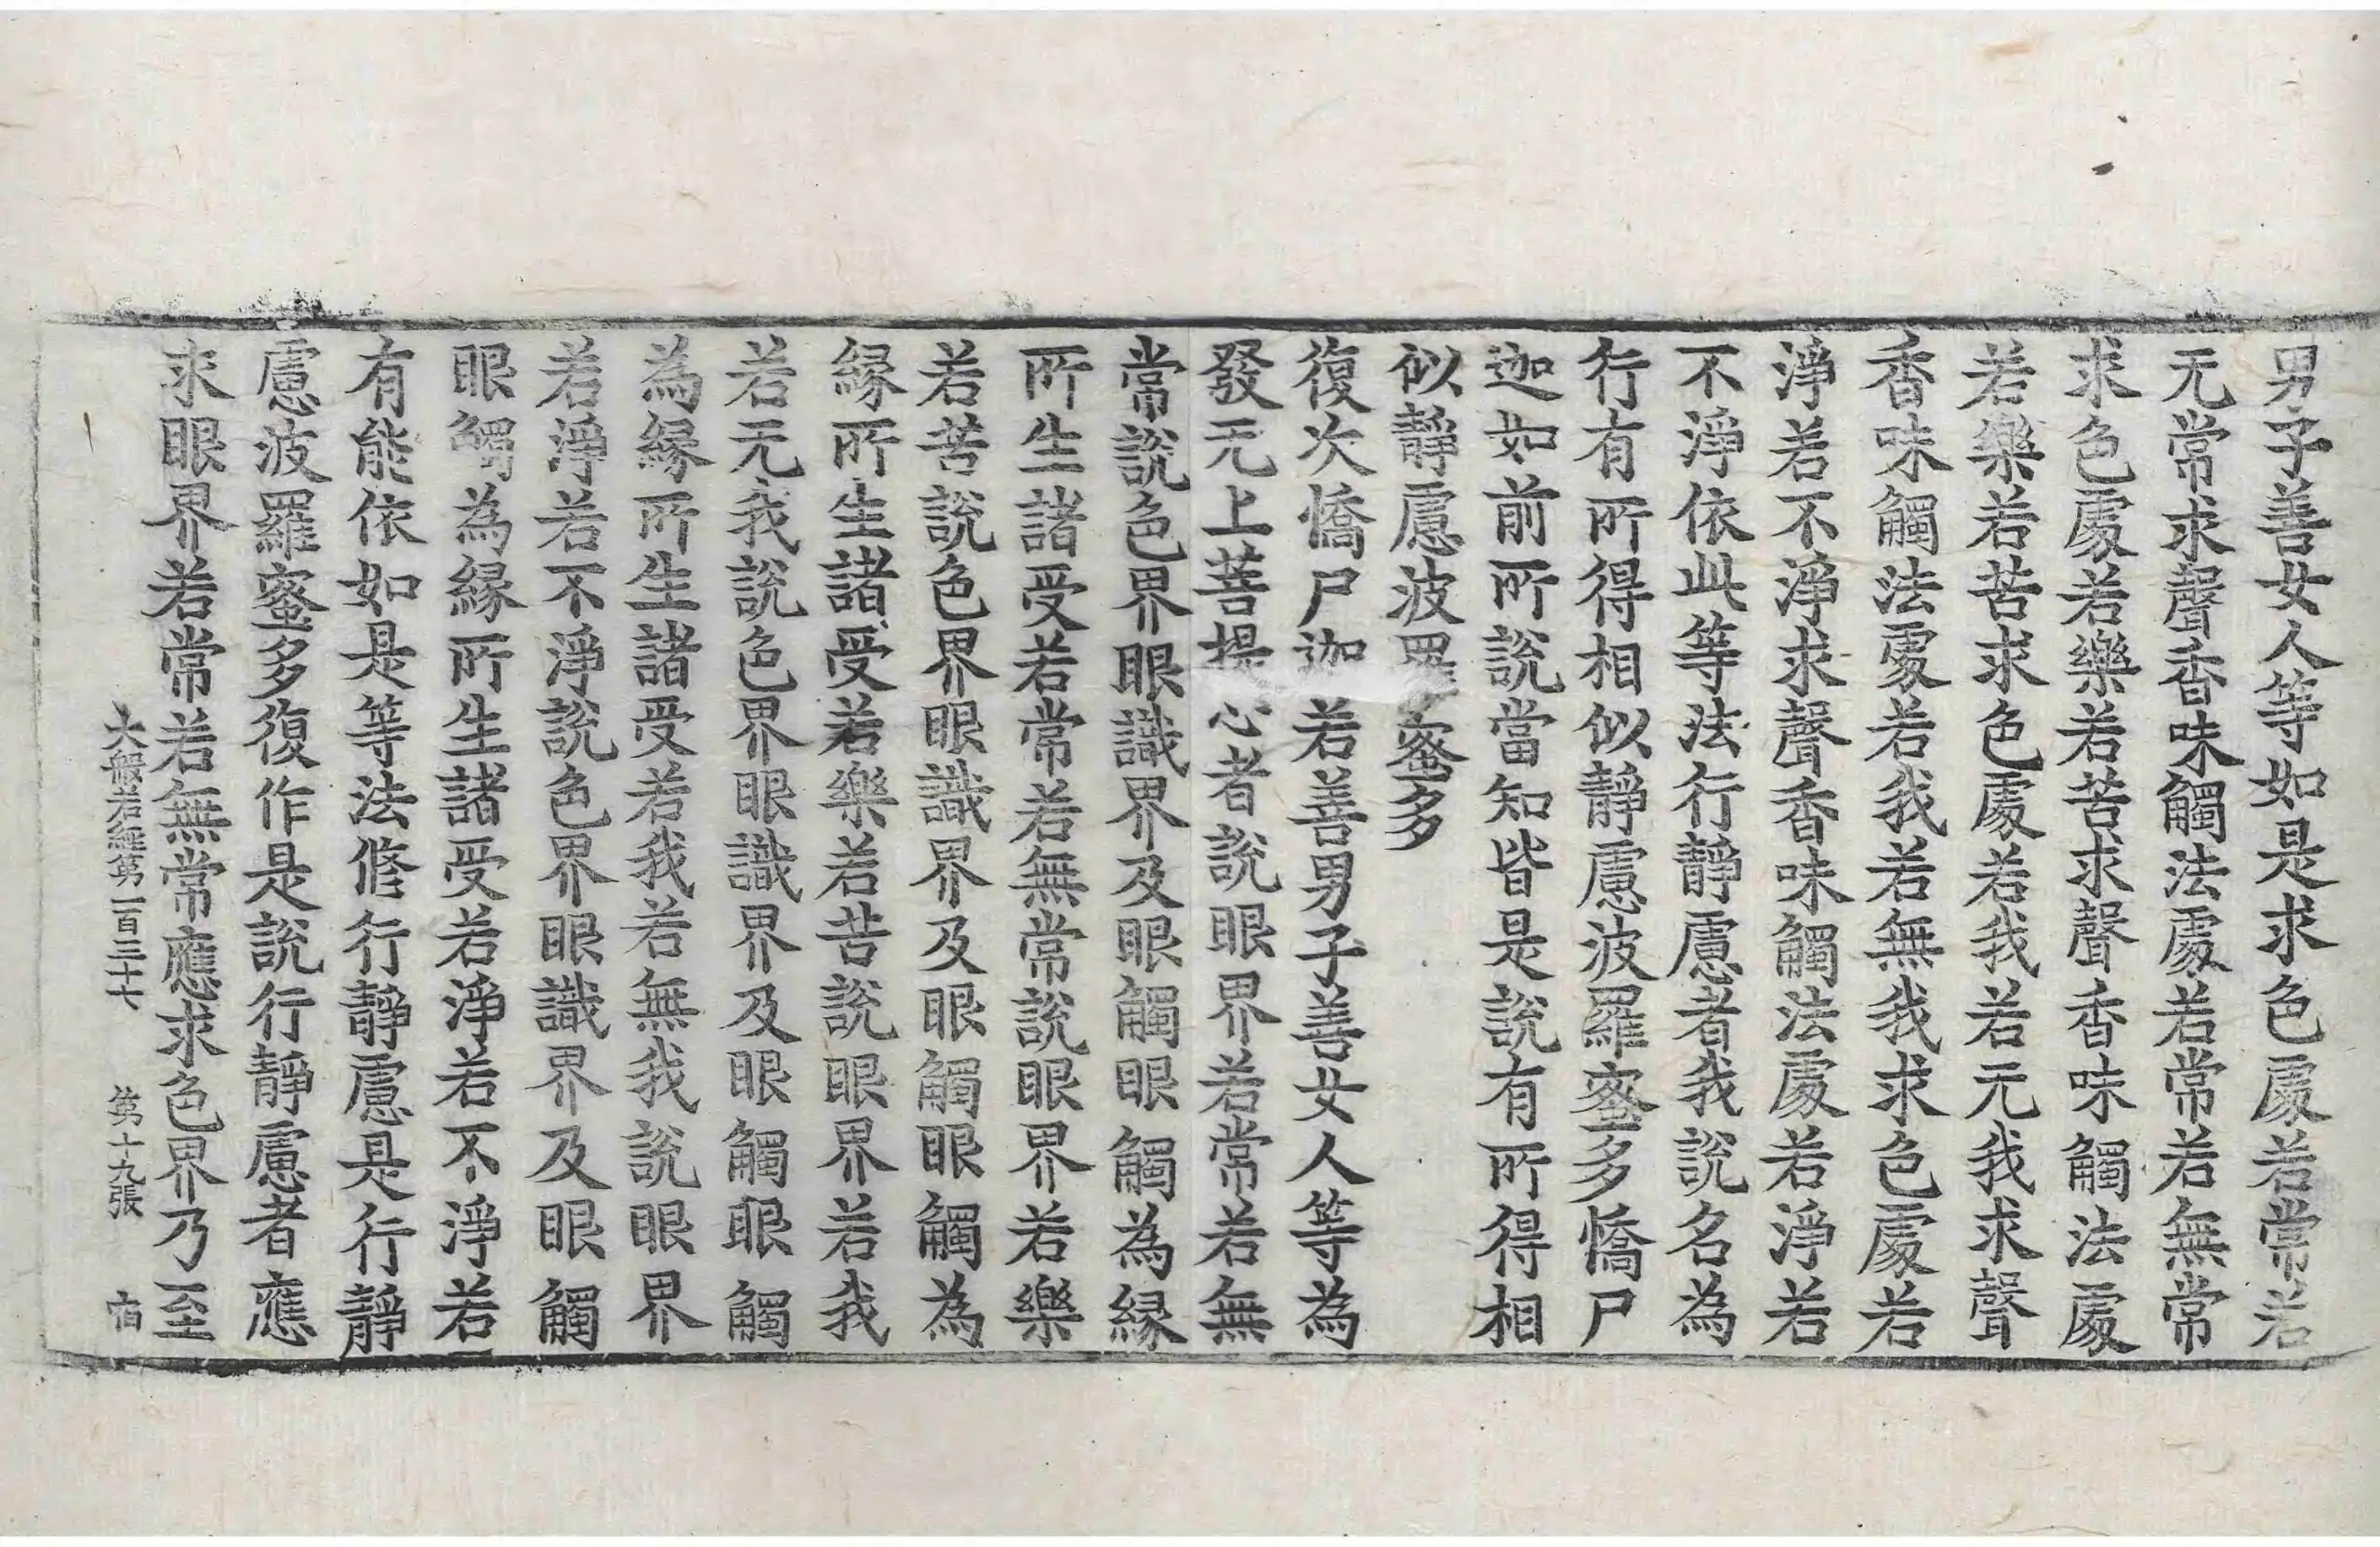 男子善女人等如是求色處若常若
无常求聲香味觸法處若常若無常
求色處若樂若苦求聲香味觸法處
若樂若苦求色處若我若元我求聲
香味觸法處若我若無我求色處若
淨若不淨求聲香味觸法處若淨若
不淨依此等法行靜慮者我說名為
行有所得相似靜慮波羅蜜多憍尸
迦如前所說當知皆是說有所得相
似靜慮波羅蜜多
復次憍尸迦若善男子善女人等為
發无上菩提心者說眼界若常若無
常說色界眼識界及眼觸眼觸為緣
所生諸受若常若無常說眼界若樂
若苦說色界眼識界及眼觸眼觸為
緣所生諸受若樂若苦說眼界若我
若无我說色界眼識界及眼觸眼觸
為緣所生諸受若我若無我說眼界
若淨若不淨說色界眼識界及眼觸
眼觸為緣所生諸受若淨若不淨若
有能依如是等法修行靜慮是行靜
慮波羅蜜多復作是說行靜慮者應
求眼界若常若無常應求色界乃至
大般若經第一百三十七 第十九張